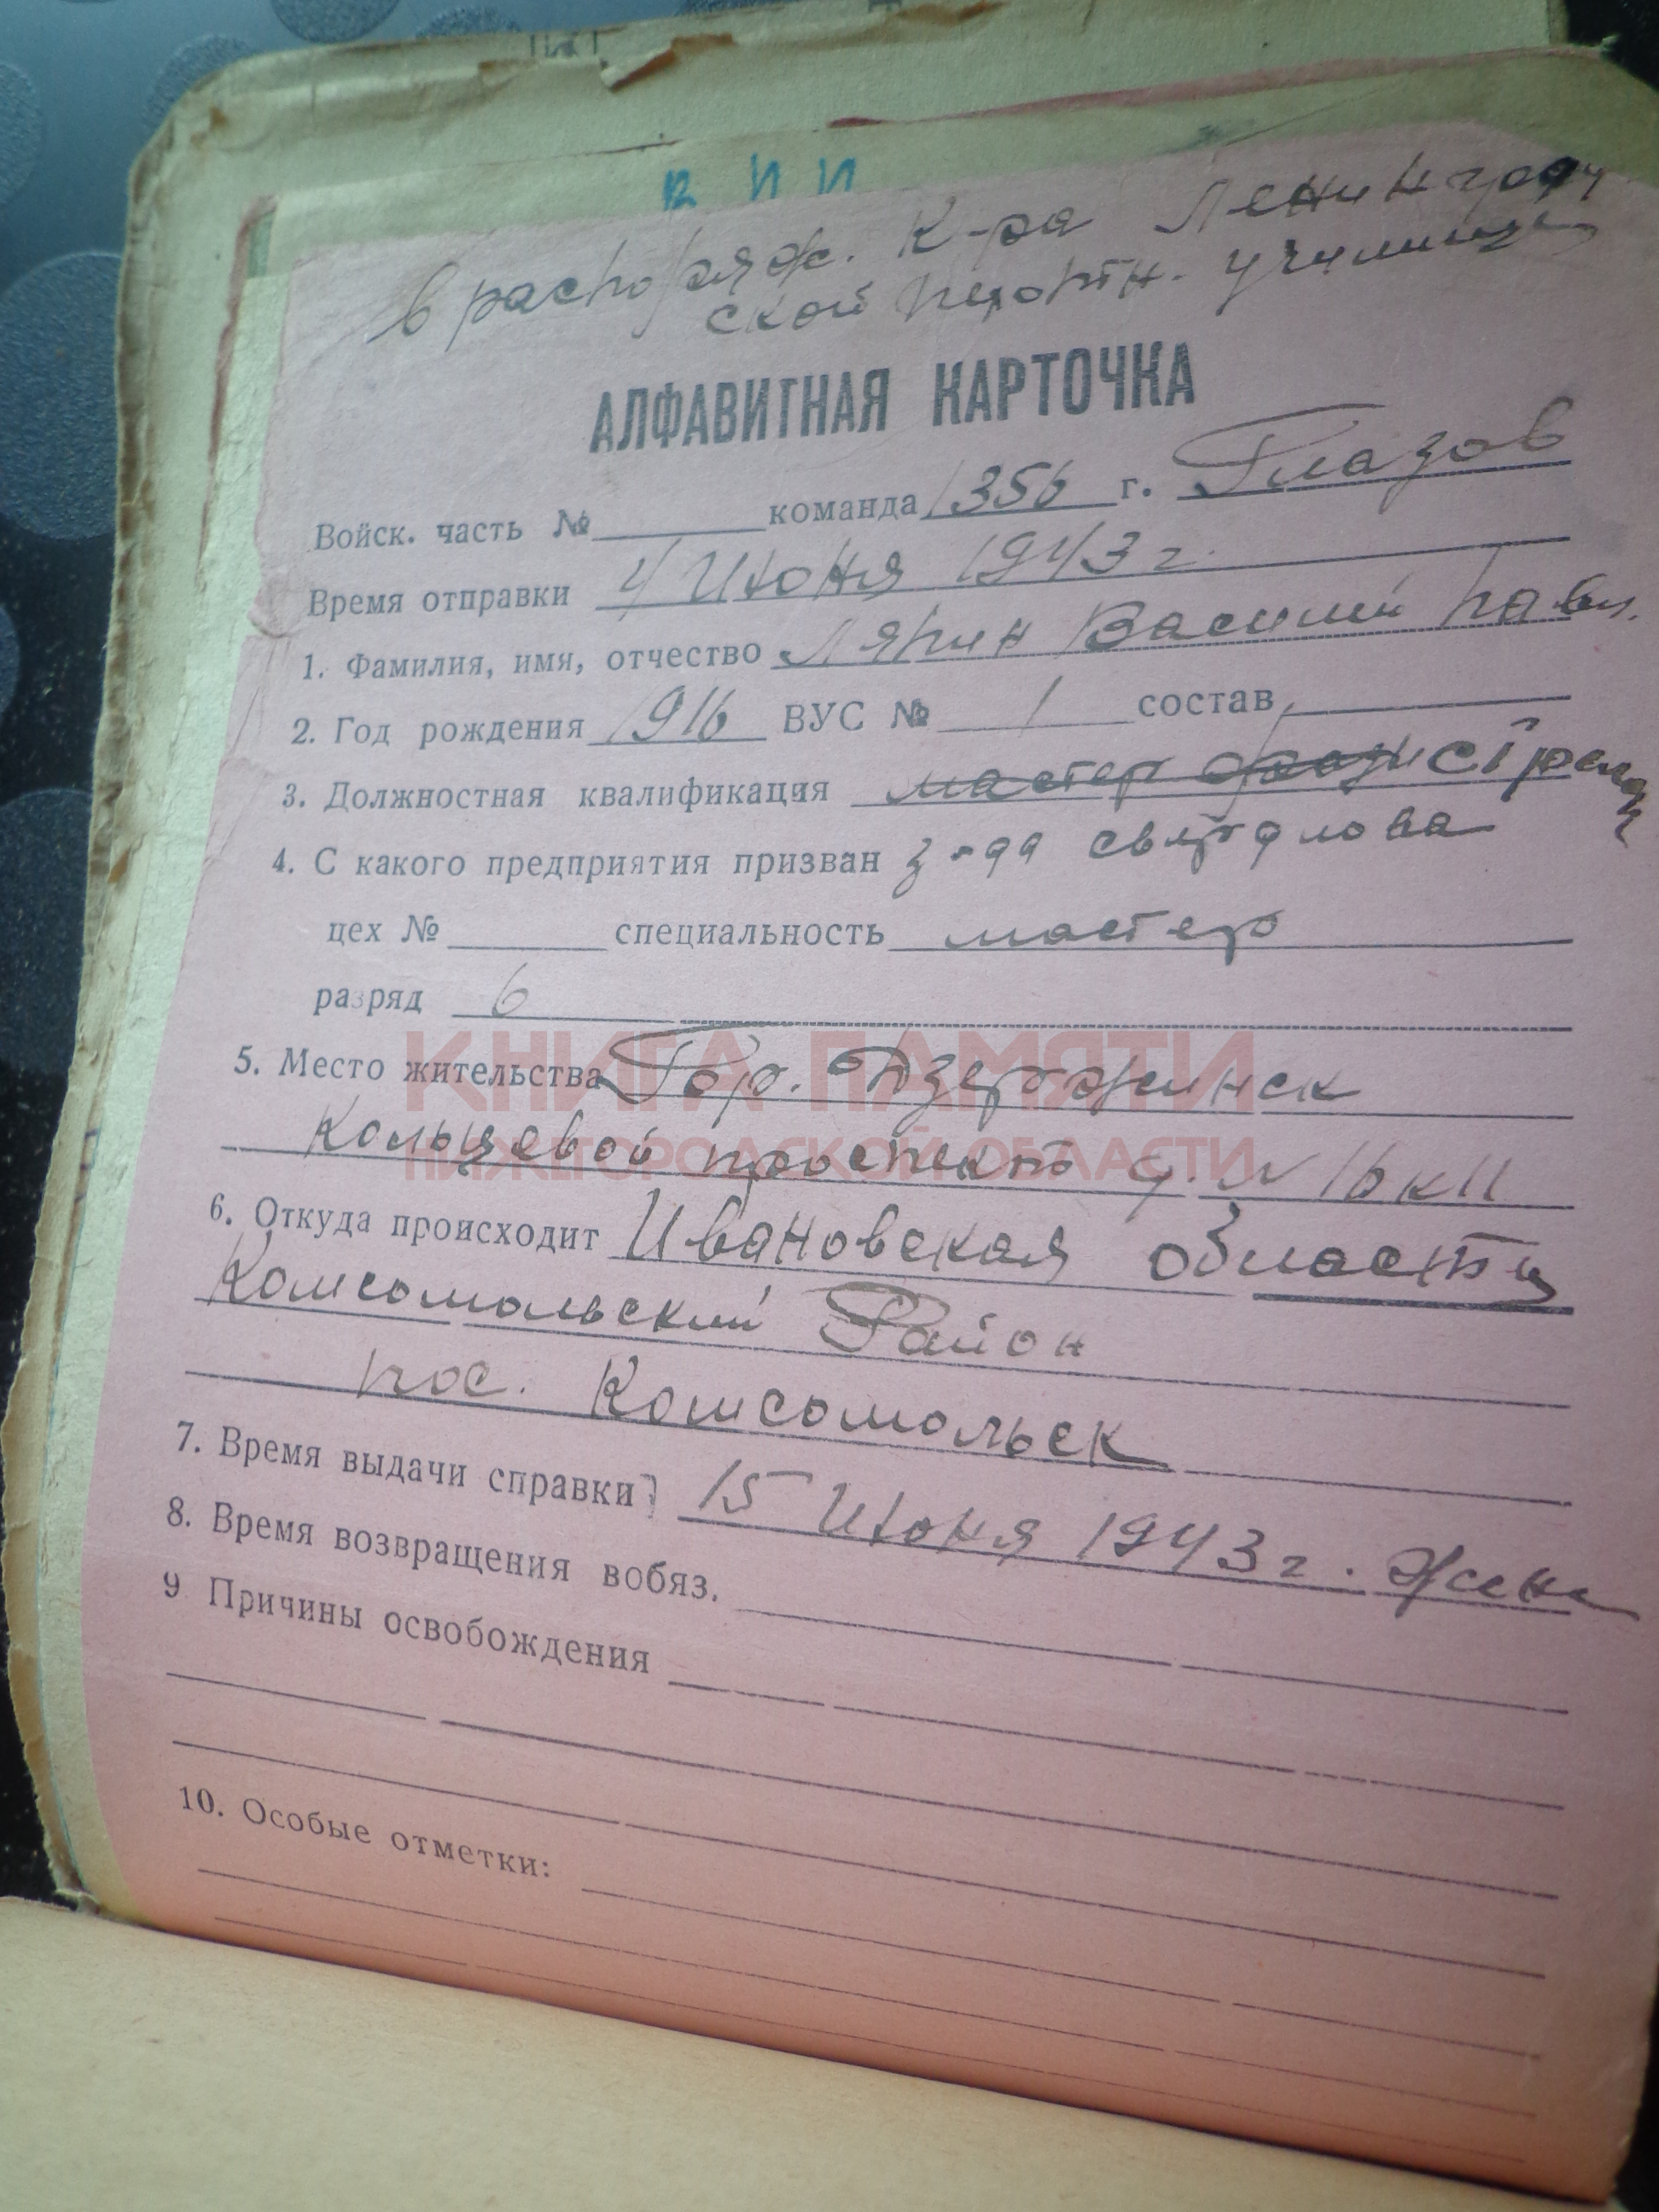 в распоряж. К-ра Ленинград
ской пехотн. училища
АЛФАВИТНАЯ КАРТОЧКА
Войск. часть № команда 1356 г. Глазов
Время отправки 4 Июня 1943 г.
1. Фамилия, имя, отчество Ляпин Василий Павл.
2. Год рождения 1916 ВУС № 1 состав
3. Должностная квалификация мастер стрелок
4. С какого предприятия призван з-да свердлова
цех № специальность мастер
разряд 6
КНИГА ПАМЯТИ
НИЖЕГОРОДСКОЙ ОБЛАСТИ
5. Место жительства Гор. Дзержинск
Кольцевой проспект д. № 16 к 11
6. Откуда происходит Ивановская область
Комсомольский Район
пос. Комсомольск
7. Время выдачи справки 15 Июня 1943 г. жене
8. Время возвращения вобяз.
9 Причины освобождения
10. Особые отметки: